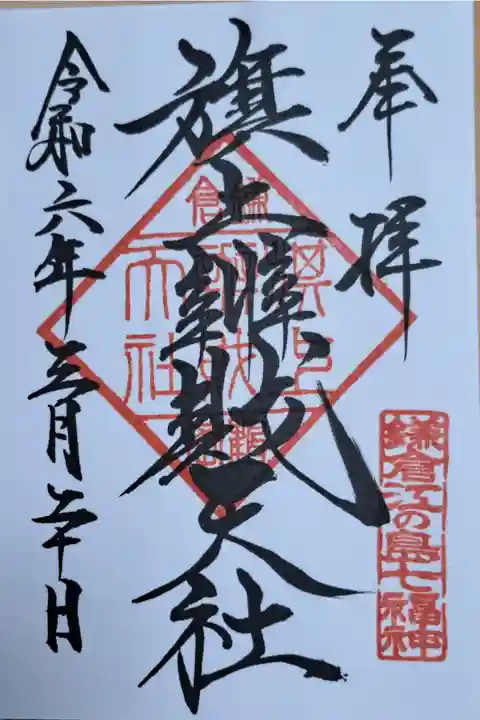 奉拝
旗上辨財天社
令和六年三月二十日
鎌倉江の島七福神